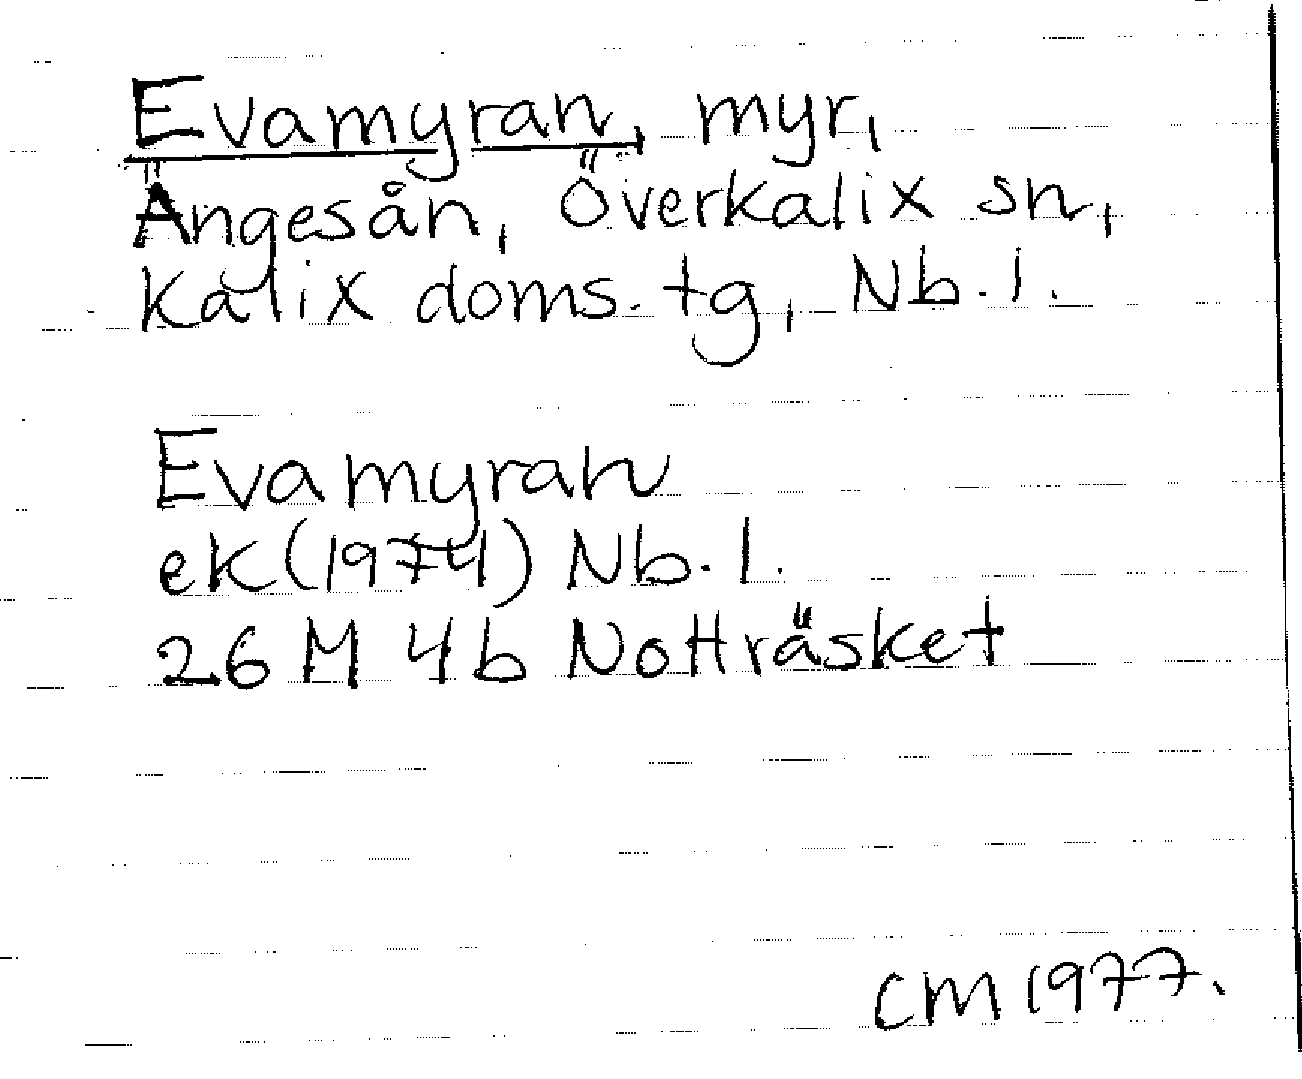 Evamyran, myr,
Ängesån, Överkalix sn,
Kalix doms. tg, Nb. l.
Evamyran
ek (1974) Nb. l.
26 M 4b Notträsket
CM 1977.